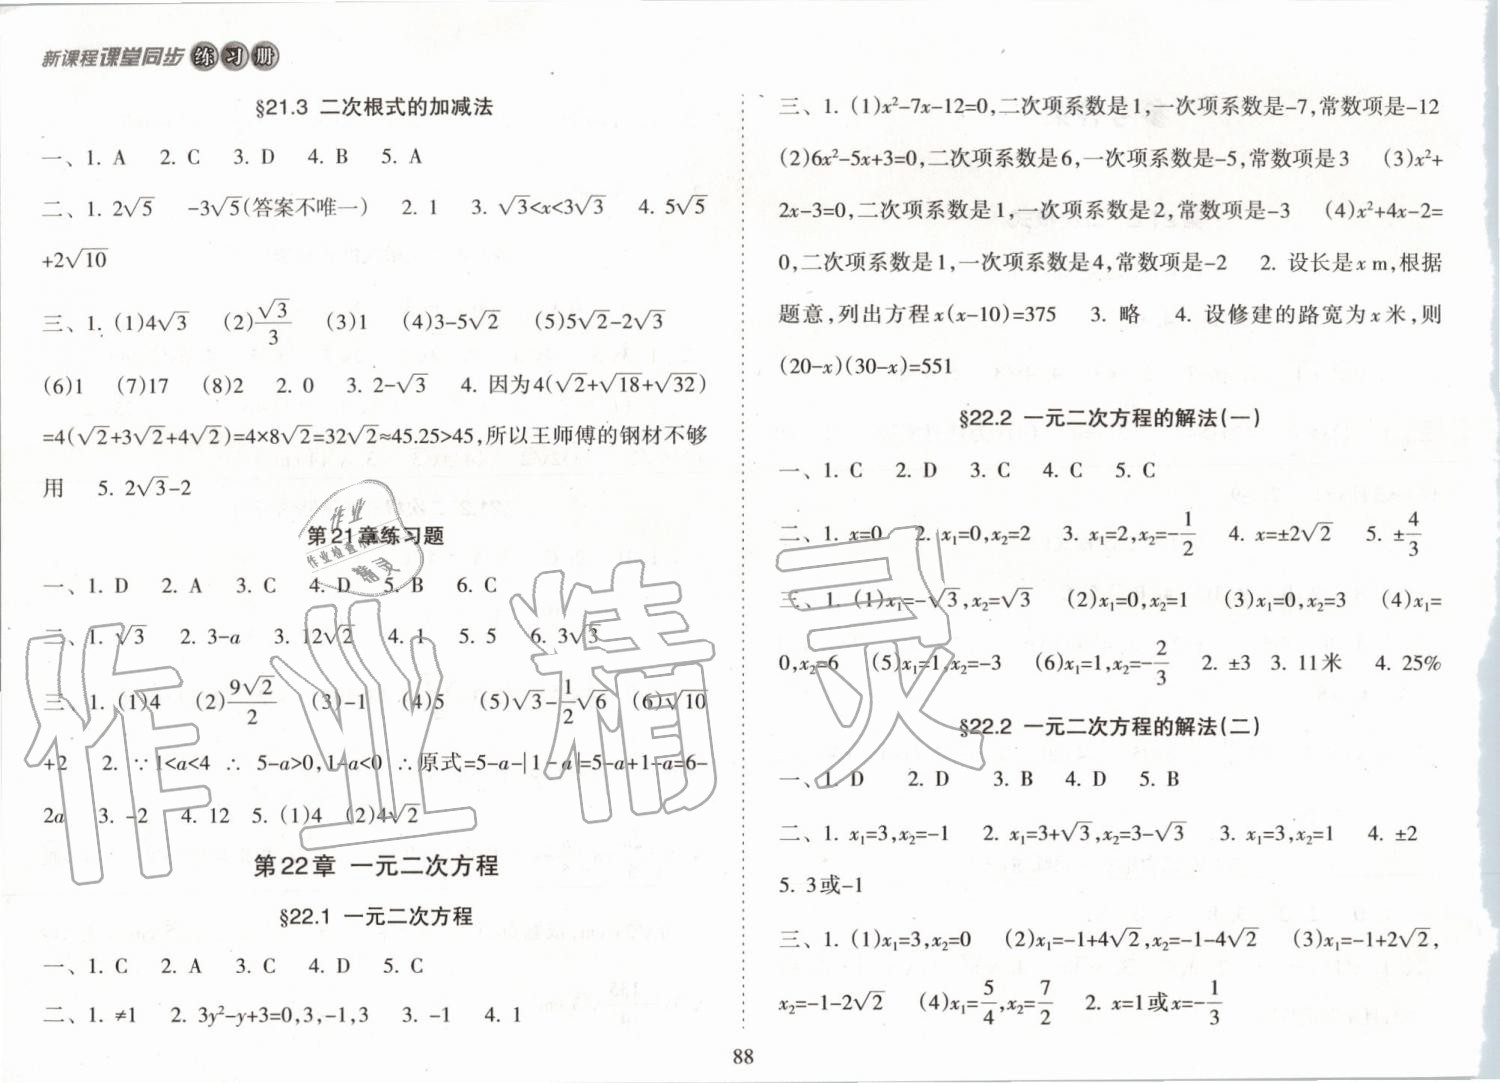 新课程课堂同步练习册
§21.3 二次根式的加减法
一、1. A 2. C 3. D 4. B 5. A
二、1. 2√5 -3√5(答案不唯一) 2. 1 3. √3<x<3√3 4. 5√5
+2√10
三、1. (1)4√3 (2)√3/3 (3)1 (4)3-5√2 (5)5√2-2√3
(6)1 (7)17 (8)2 2. 0 3. 2-√3 4. 因为4(√2+√18+√32)
=4(√2+3√2+4√2)=4×8√2=32√2≈45.25>45,所以王师傅的钢材不够
用 5. 2√3-2
第21章练习题
一、1. D 2. A 3. C 4. D 5. B 6. C
二、1. √3 2. 3-a 3. 12√2 4. 1 5. 5 6. 3√3
三、1. (1)4 (2)9√2/2 (3)-1 (4)5 (5)√3-1/2√6 (6)√10
+2 2. ∵1<a<4 ∴ 5-a>0,1-a<0 ∴原式=5-a-|1-a|=5-a+1-a=6-
2a 3. -2 4. 12 5. (1)4 (2)4√2
第22章 一元二次方程
§22.1 一元二次方程
一、1. C 2. A 3. C 4. D 5. C
二、1. ≠1 2. 3y²-y+3=0,3,-1,3 3. -1 4. 1
三、1. (1)x²-7x-12=0,二次项系数是1,一次项系数是-7,常数项是-12
(2)6x²-5x+3=0,二次项系数是6,一次项系数是-5,常数项是3 (3)x²+
2x-3=0,二次项系数是1,一次项系数是2,常数项是-3 (4)x²+4x-2=
0,二次项系数是1,一次项系数是4,常数项是-2 2. 设长是x m,根据
题意,列出方程x(x-10)=375 3. 略 4. 设修建的路宽为x米,则
(20-x)(30-x)=551
§22.2 一元二次方程的解法(一)
一、1. C 2. D 3. C 4. C 5. C
二、1. x=0 2. x₁=0,x₂=2 3. x₁=2,x₂=-1/2 4. x=±2√2 5. ±4/3
三、1. (1)x₁=-√3,x₂=√3 (2)x₁=0,x₂=1 (3)x₁=0,x₂=3 (4)x₁=
0,x₂=6 (5)x₁=1,x₂=-3 (6)x₁=1,x₂=-2/3 2. ±3 3. 11米 4. 25%
§22.2 一元二次方程的解法(二)
一、1. D 2. D 3. B 4. D 5. B
二、1. x₁=3,x₂=-1 2. x₁=3+√3,x₂=3-√3 3. x₁=3,x₂=1 4. ±2
5. 3或-1
三、1. (1)x₁=3,x₂=0 (2)x₁=-1+4√2,x₂=-1-4√2 (3)x₁=-1+2√2,
x₂=-1-2√2 (4)x₁=5/4,x₂=7/2 2. x=1或x=-1/3
88
作业精灵